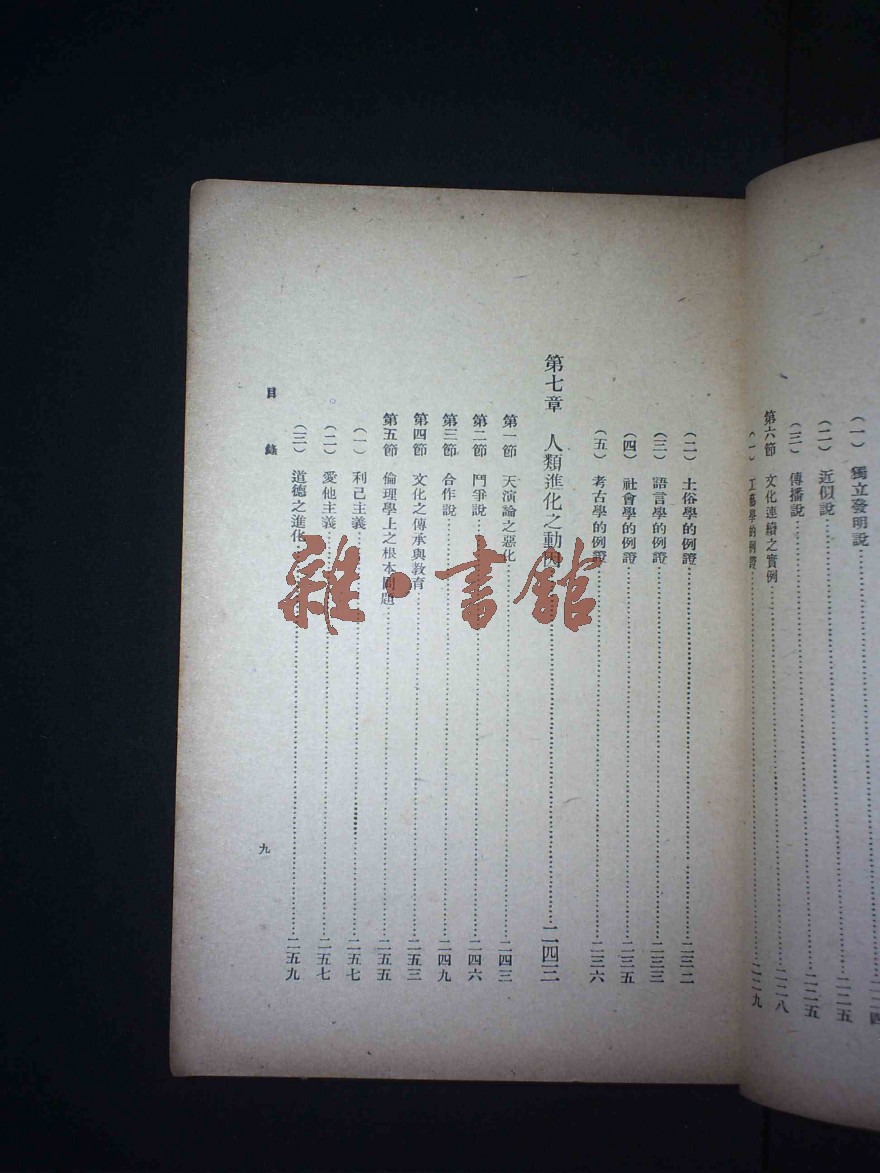 （一）獨立發明說……二二四
（二）近似說……二二五
（三）傳播說……二二五
第六節　文化連續之實例……二二八
（一）工藝學的例證……二二九
（二）土俗學的例證……二三二
（三）語言學的例證……二三三
（四）社會學的例證……二三五
（五）考古學的例證……二三六
第七章　人類進化之動因……二四三
第一節　天演論之惡化……二四三
第二節　鬥爭說……二四六
第三節　合作說……二四九
第四節　文化之傳承與教育……二五三
第五節　倫理學上之根本問題……二五五
（一）利己主義……二五七
（二）愛他主義……二五七
（三）道德之進化……二五九
目錄
九
雜·書館